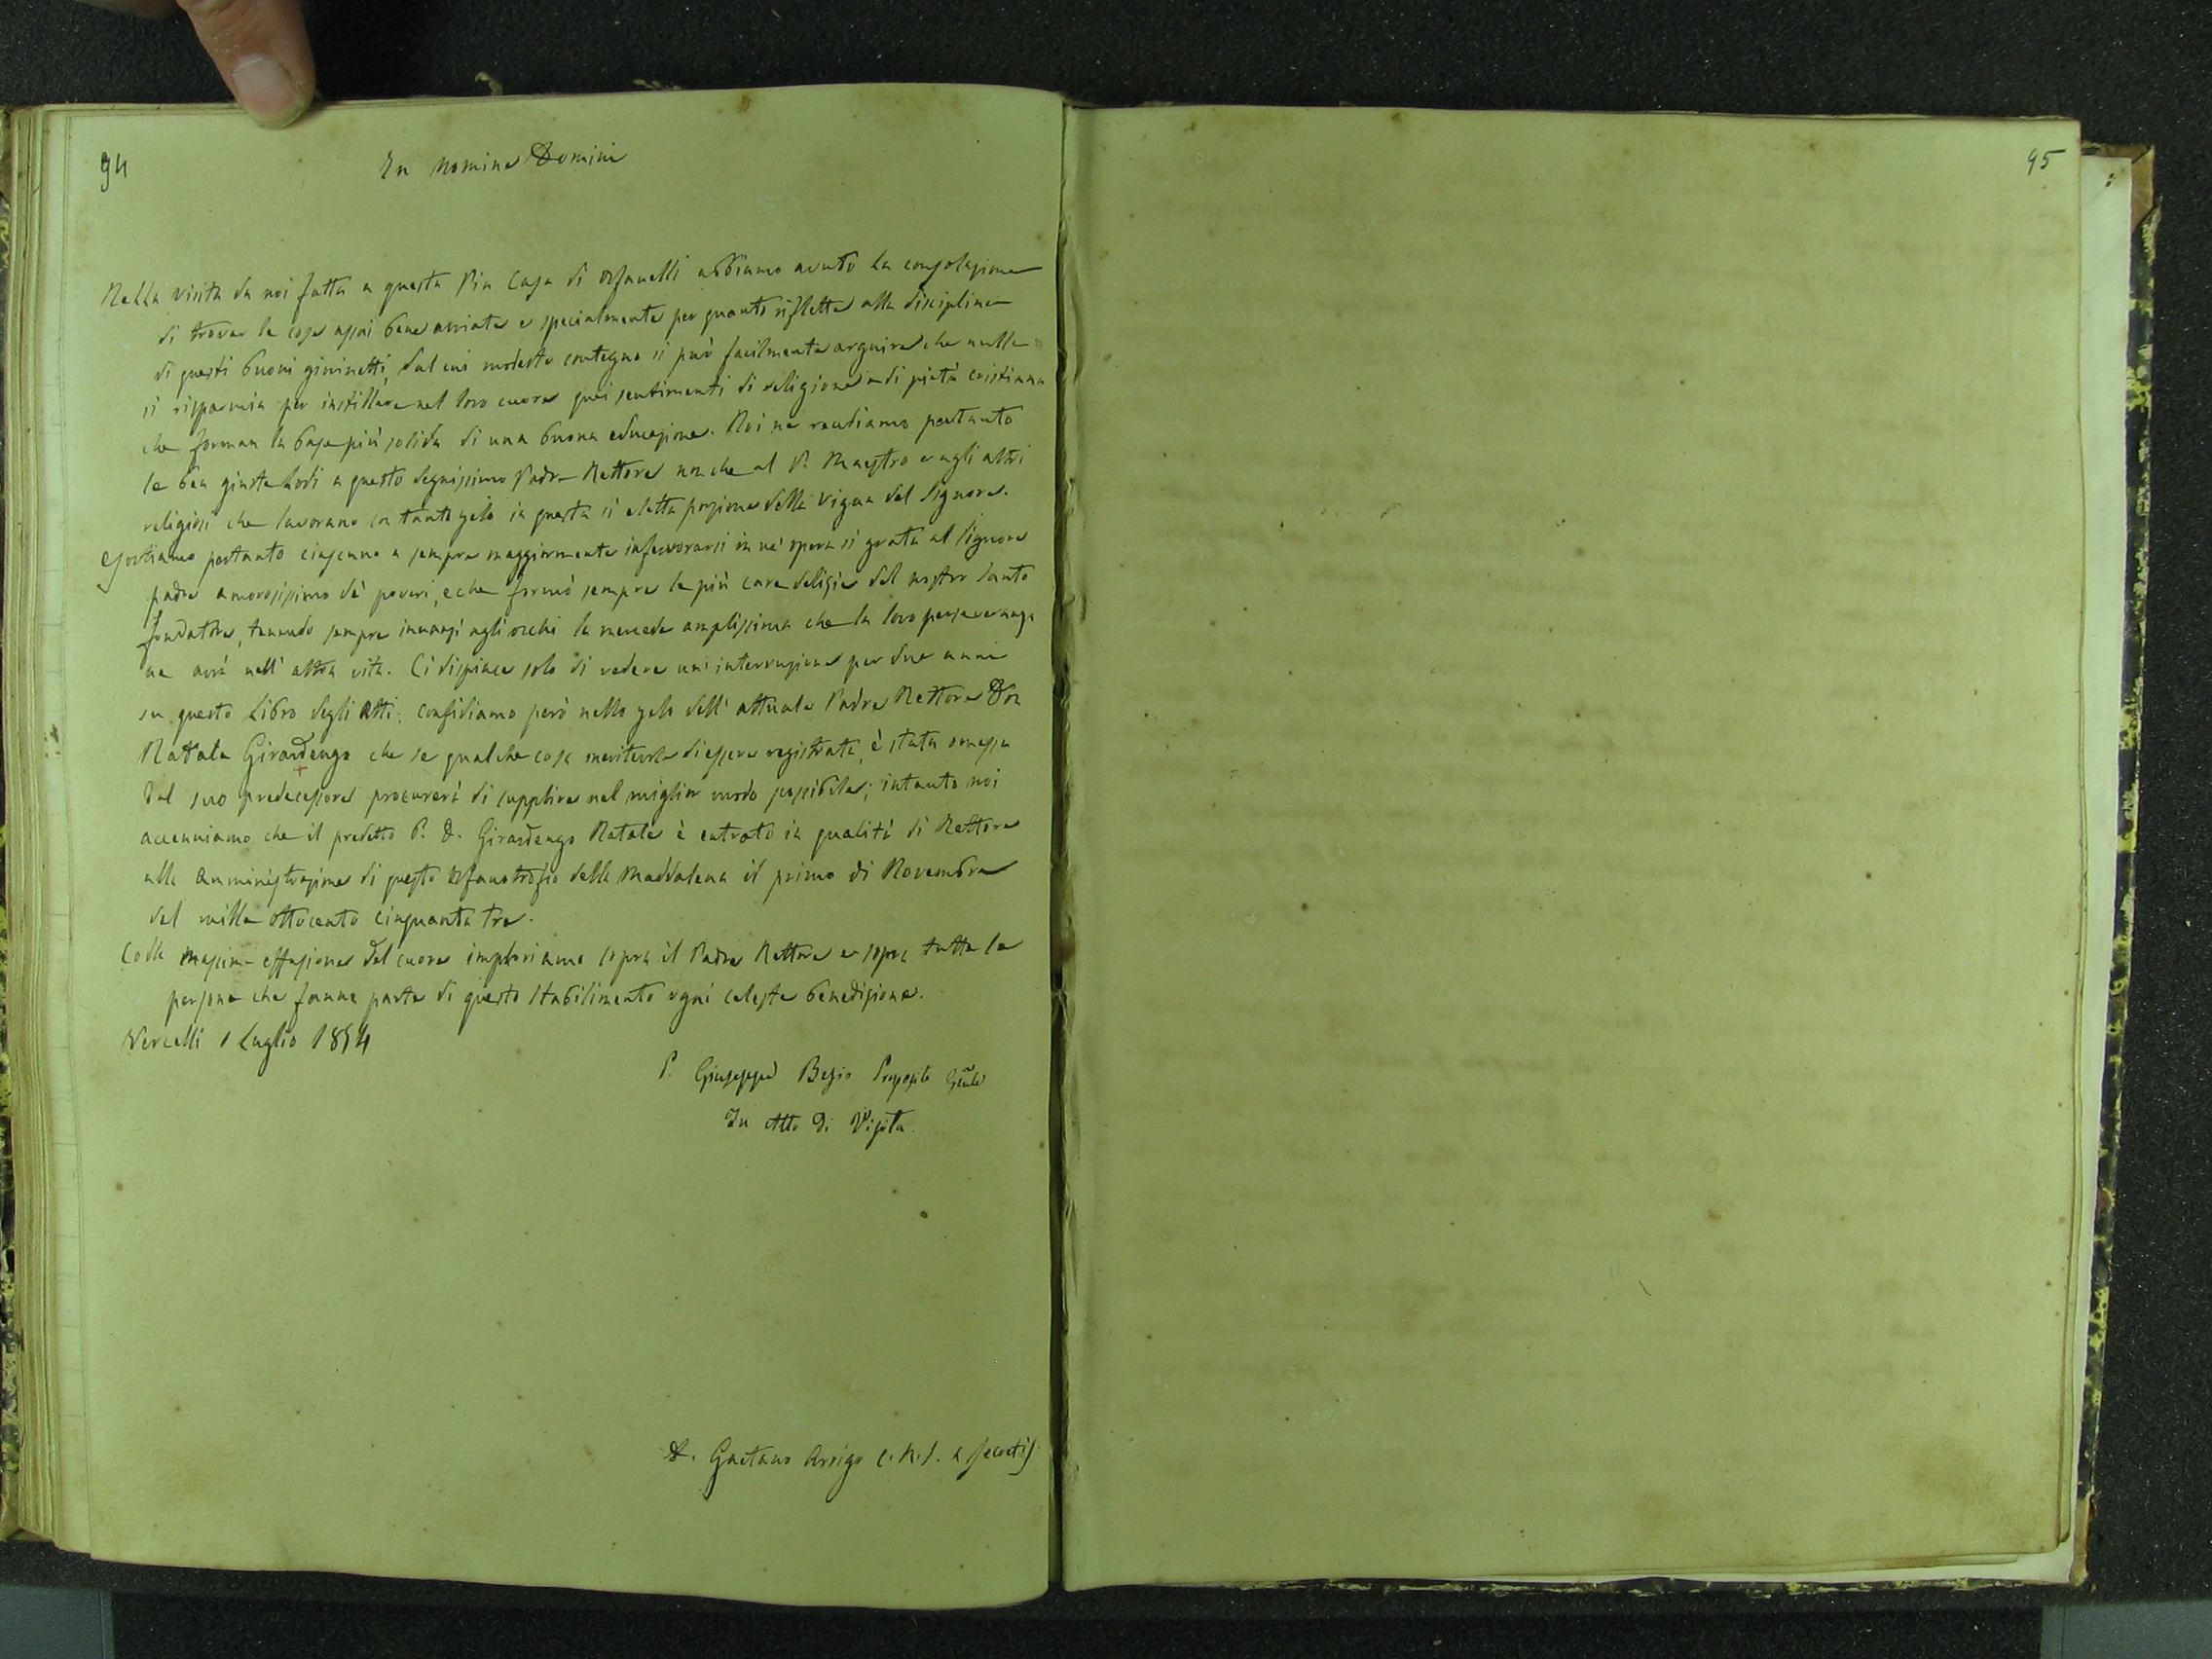 94
In nomine Domini
Nella visita da noi fatta a questa Pia Casa di Orfanelli abbiamo avuto la consolazione
di trovar le cose assai bene avviate e specialmente per quanto riflette alla disciplina
di questi buoni giovinetti, dal cui modesto contegno si può facilmente arguire che nulla
si risparmia per instillare nel loro cuore quei sentimenti di religione e di pietà cristiana
che forman la base più solida di una buona educazione. Noi ne rendiamo pertanto
le ben giuste lodi a questo degnissimo Padre Rettore non che al P. Maestro e agli altri
religiosi che lavorano con tanto zelo in questa sì eletta porzione della vigna del Signore.
Esortiamo pertanto ciascuno a sempre maggiormente infervorarsi in un' opera sì grata al Signore
padre amorosissimo de' poveri, e che formò sempre le più care delizie del nostro Santo
fondatore, tenendo sempre innanzi agli occhi la mercede amplissima che la loro perseveranza
ne avrà nell' altra vita. Ci dispiace solo di vedere un' interruzione per due anni
su questo Libro degli Atti; confidiamo però nello zelo dell' attuale Padre Rettore Don
Natale Girardengo che se qualche cosa meritevole di essere registrata, è stata omessa
dal suo predecessore procurerà di supplire nel miglior modo possibile; intanto noi
accenniamo che il predetto P. D. Girardengo Natale è entrato in qualità di Rettore
alla Amministrazione di questo Orfanotrofio della Maddalena il primo di Novembre
del mille ottocento cinquanta tre.
Colla massima effusione del cuore imploriamo sopra il Padre Rettore e sopra tutte le
persone che fanno parte di questo Stabilimento ogni celeste benedizione.
Vercelli 1 Luglio 1854
P. Giuseppe Besio Preposito Gñle
In Atto di Visita.
D. Gaetano Arrigo C.R.S. a secretis
95